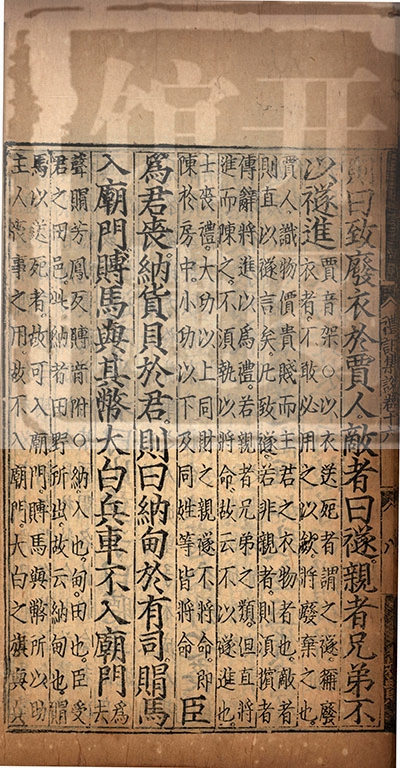 禮記集說卷
則曰致廢衣於賈人敵者曰襚親者兄弟不
以襚進
賈音架○以衣送死者謂之襚稱廢
衣者不敢必用之以歛將廢棄之也
賈人識物價貴賤而主君之衣物者也敵者
則直以襚言矣凡致襚若非親者則須擯者
傳辭將進以為禮若親者兄弟之類但直將
進而陳之不須執以將命故云不以襚進也
士喪禮大功以上同財之親襚不將命即
陳於房中小功以下及同姓等皆將命
臣
為君喪納貨貝於君則曰納甸於有司賵馬
入廟門賻馬與其幣大白兵車不入廟門
為
去
聲賵芳鳳反賻音附○納入也甸田也臣受
君之田邑此納者田野所出故云納甸也賵
馬以送死者故可入廟門賻馬與幣所以助
主人喪事之用故不入廟門大白之旗與兵